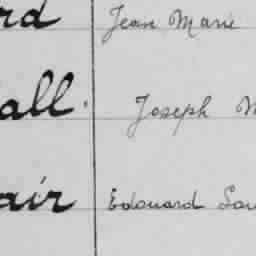 rd Jean Marie
all. Joseph M
air Edouard Lou